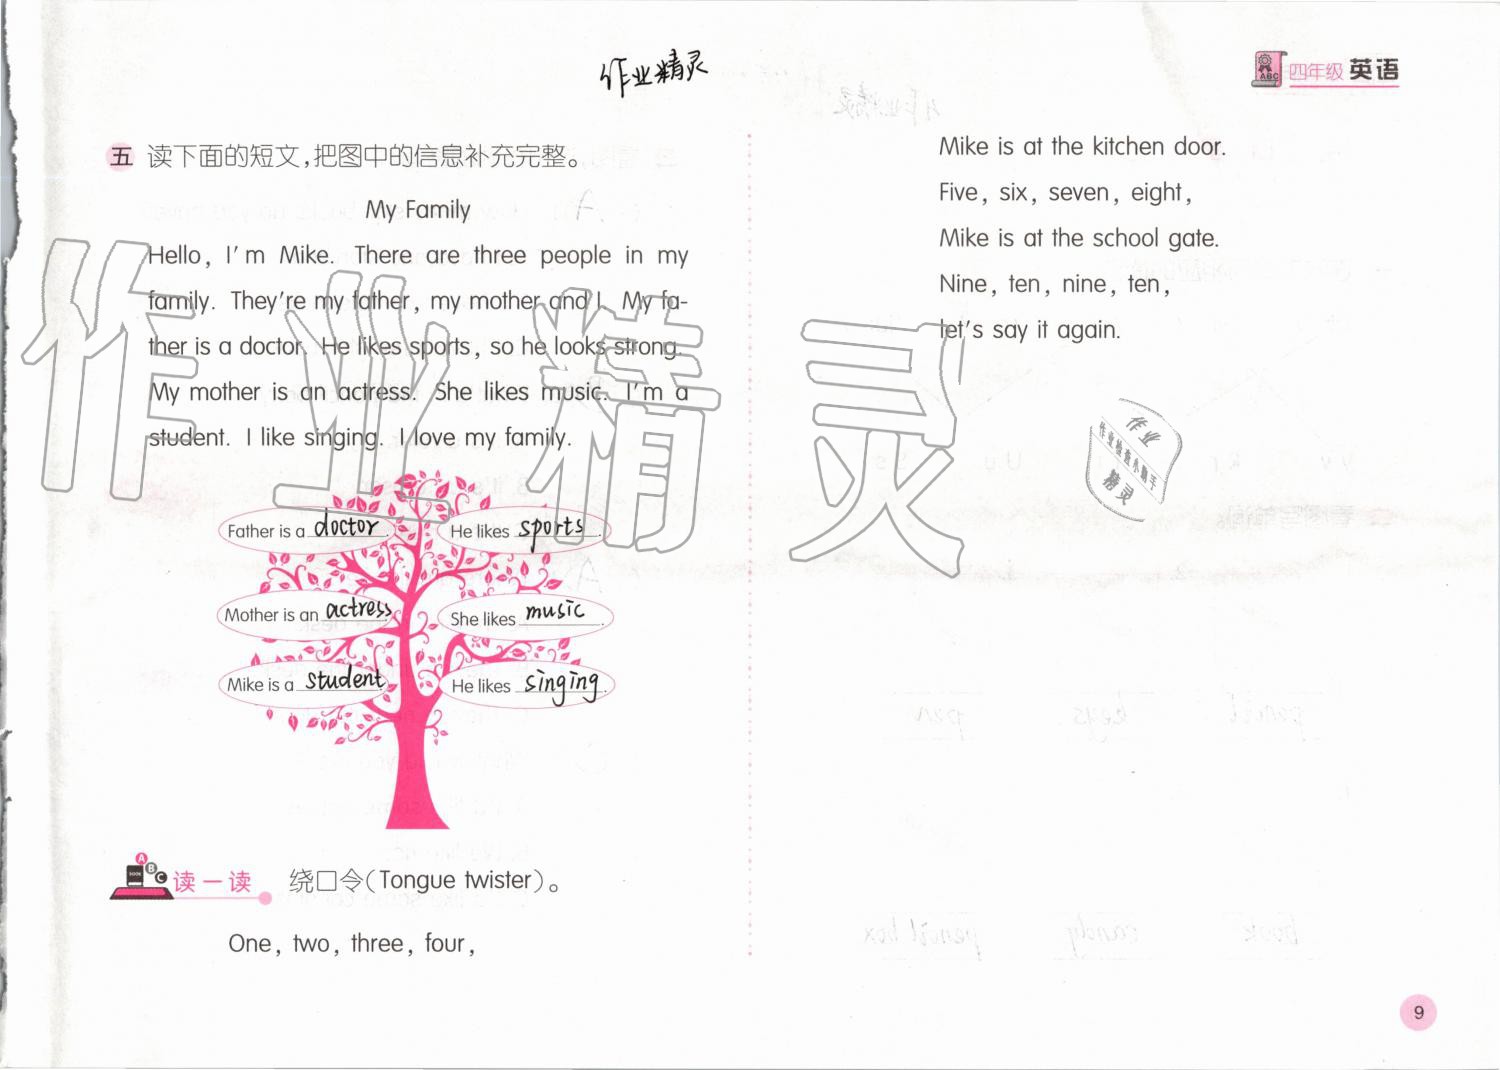 作业精灵
四年级 英语
五 读下面的短文,把图中的信息补充完整。
My Family
Hello, I'm Mike. There are three people in my
family. They're my father, my mother and I. My fa-
ther is a doctor. He likes sports, so he looks strong.
My mother is an actress. She likes music. I'm a
student. I like singing. I love my family.
Father is a doctor.
He likes sports.
Mother is an actress.
She likes music.
Mike is a student.
He likes singing.
读一读 绕口令(Tongue twister)。
One, two, three, four,
Mike is at the kitchen door.
Five, six, seven, eight,
Mike is at the school gate.
Nine, ten, nine, ten,
let's say it again.
作业精灵
作业
作业检查小助手
精灵
9